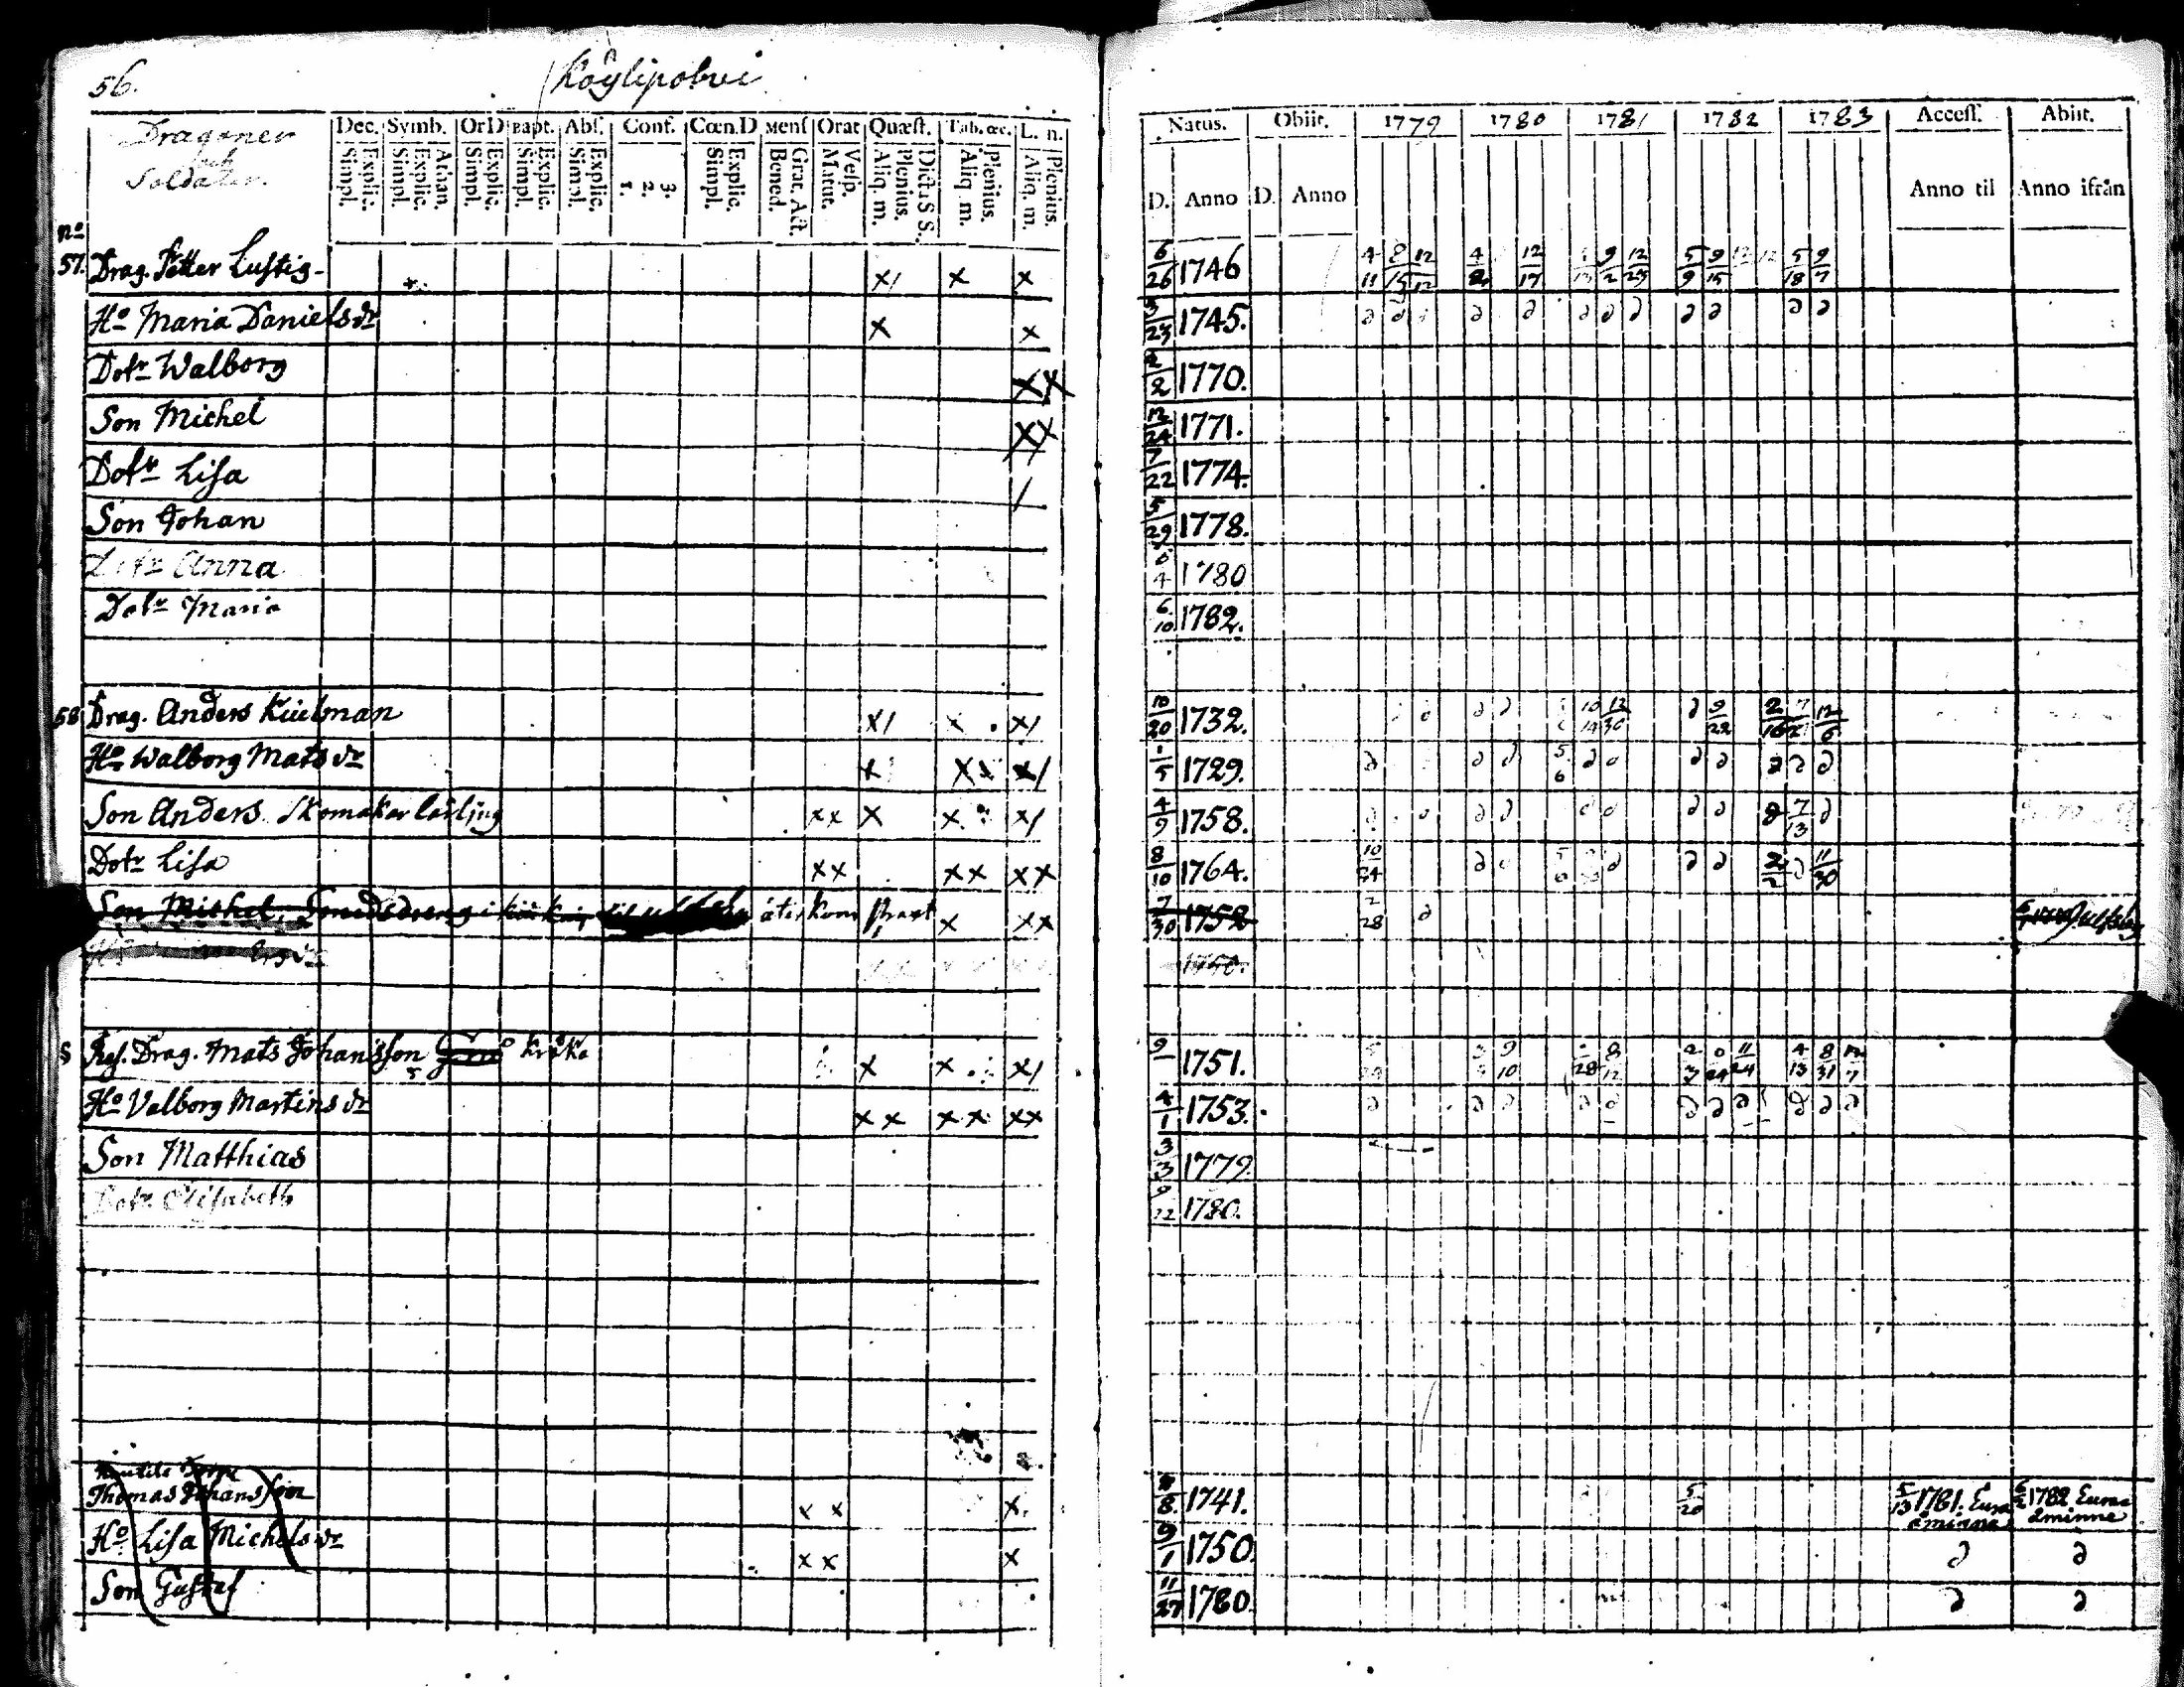 56. Köylipolvi
Dragoner
och
Soldater.
Dec. Symb. OrD Bapt. Abs. Conf. Cœn.D Mens Orat Quæst. Tab. œc. L. n.
Explic. Simpl. Athan. Explic. Simpl. Explic. Simpl. Explic. Simpl. Explic. Simpl. 3. 2. 1. Explic. Simpl. Grat. Act. Bened. Vesp. Matut. Dicta S S. Plenius. Aliq. m. Plenius. Aliq. m. Plenius. Aliq. m.
Natus. Obiit. 1779 1780 1781 1782 1783 Access. Abiit.
D. Anno D. Anno Anno til Anno ifrån
No
57. Drag. Petter Lustig- x x/ x x 6/26 1746 4/11 8/15 12/12 4/2 12/17 9/2 12/23 5/9 9/15 5/18 9/7
Ho Maria Danielsdr x x 3/23 1745. ∂ ∂ ∂ ∂ ∂ ∂ ∂ ∂ ∂ ∂ ∂
Dotr Walborg xx 2/2 1770.
Son Michel xx 12/24 1771.
Dotr Lisa / 7/22 1774.
Son Johan 5/29 1778.
Dotr Anna 4 1780
Dotr Maria 6/10 1782.
58 Drag. Anders Kiulman x/ x x/ 10/20 1732. ∂ ∂ 10/14 12/30 ∂ 9/22 2/16 12/6
Ho Walborg Matsdr x xx x/ 1/5 1729. ∂ ∂ ∂ 5/6 ∂ ∂ ∂ ∂ ∂ ∂
Son Anders Skomakar lärljng xx x x x/ 4/9 1758. ∂ ∂ ∂ ∂ ∂ ∂ ∂ ∂ ∂ 7/13 ∂
Dotr Lisa xx xx xx 8/10 1764. 10/24 ∂ ∂ ∂ ∂ 2/2 ∂ 11/30
Son Michel, Smedsdreng i återkom x xx 7/30 1752 2/28 ∂
Ersdr 1750.
S Res. Drag. Mats Johansson Kråka x x x/ 9 1751. 9/10 8/12 11/24 4/13 8/31 12/7
Ho Valborg Martinsdr xx xx xx 4/1 1753. ∂ ∂ ∂ ∂ ∂ ∂ ∂ ∂ ∂ ∂ ∂
Son Matthias 3/3 1779.
Dotr Elisabeth 9/22 1780.
Thomas Johansson xx x. 8 1741. 5/20 5/13 1781. Eura 6/2 1782 Eura
åminne åminne
Ho Lisa Michelsdr xx x 9/1 1750 ∂ ∂
Son Gustaf 11/27 1780. ∂ ∂